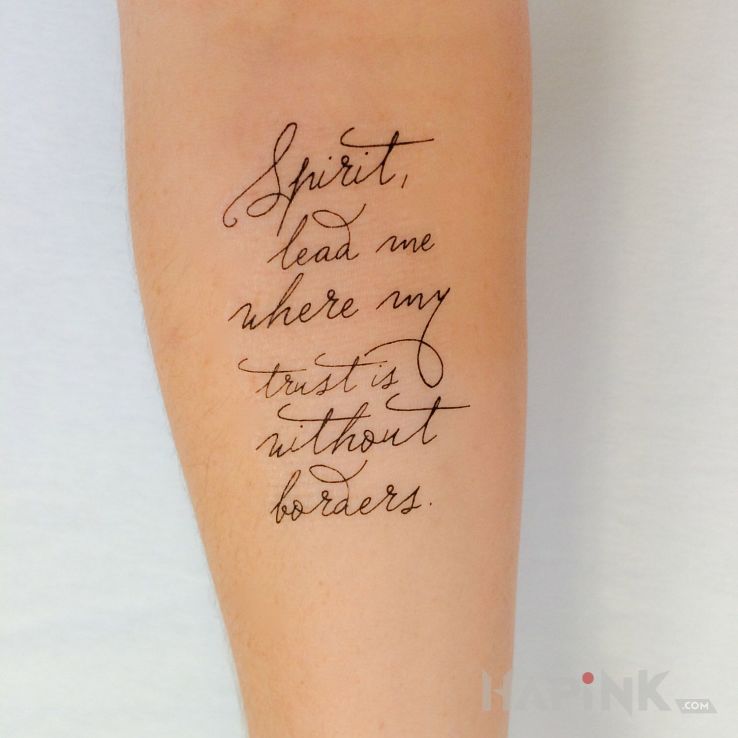 Spirit,
lead me
where my
trust is
without
borders.
HAPINK
.COM